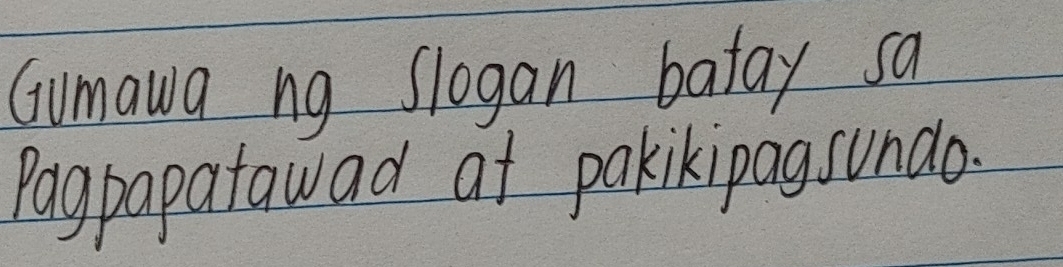 Gumawa ng Slogan batay sa
Pagpapatawad at pakikipagsundo.